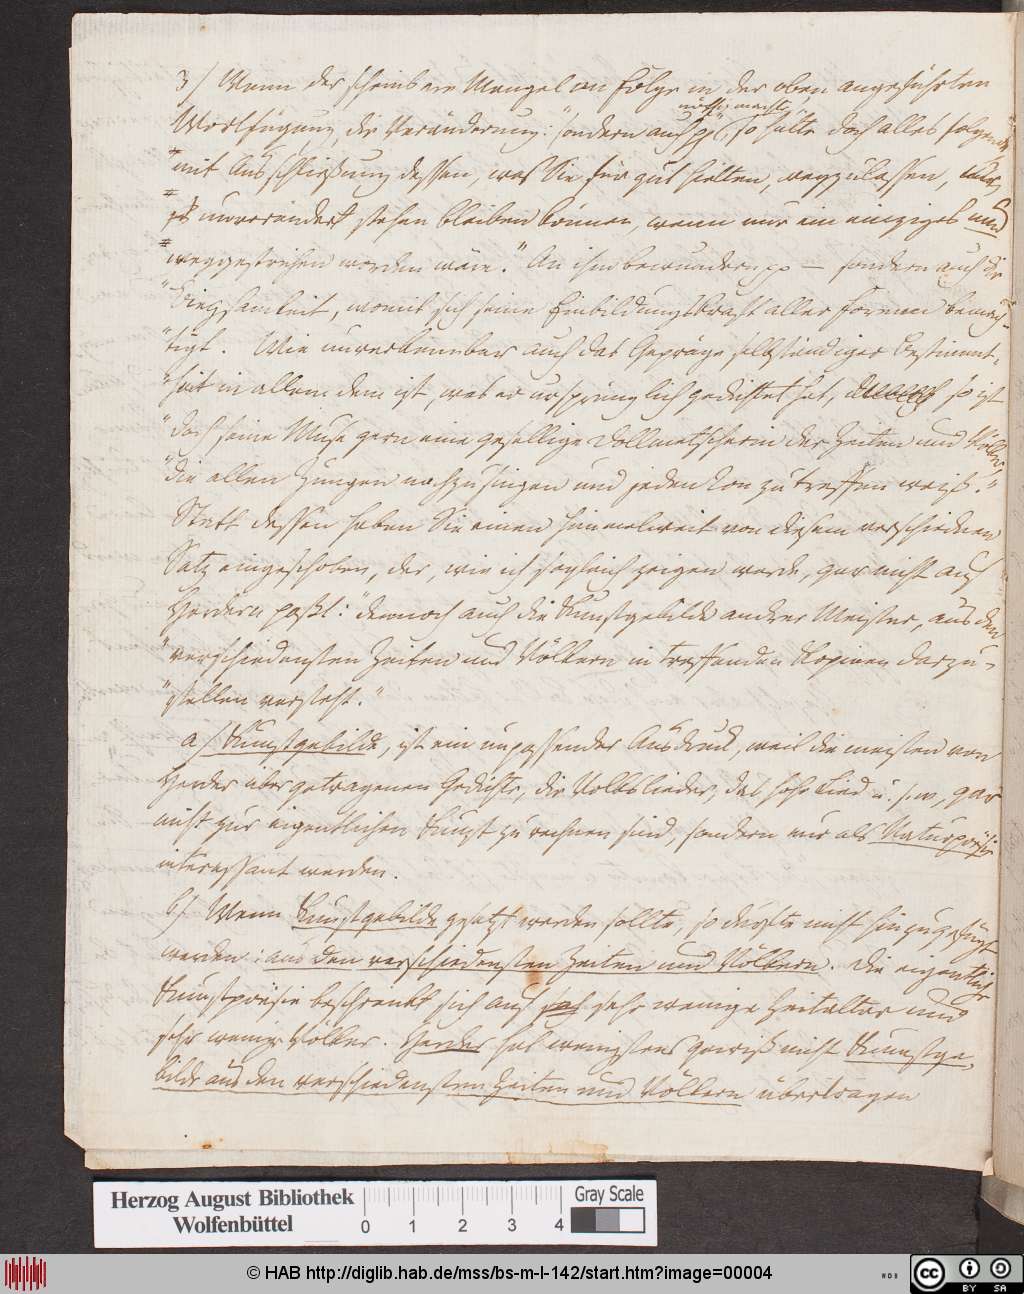 3/ Wenn der scheinbare Mangel an Folge in der oben angeführten
nöthig machte,
Wortfügung die Veränderung: "sondern auch pp" so hätte doch alles folgende
mit Ausschließung dessen, was Sie für gut hielten, wegzulassen,
unverändert stehen bleiben können, wenn nur ein einziges und
weggestrichen worden wäre." An ihm bewundern pp — sondern auch die
"Biegsamkeit, womit sich seine Einbildungskraft aller Formen bemäch-
"tigt. Wie unverkennbar auch das Gepräge selbständiger Bestimmt-
"heit in allem dem ist, was er ursprünglich gedichtet hat, so ist
"doch seine Muse gern eine gesellige Dollmetscherin der Zeiten und Völker,
"die allen Zungen nachzusingen und jeden Ton zu treffen weiß."
Statt dessen haben Sie einen himmelweit von diesem verschiednen
Satz eingeschoben, der, wie ich sogleich zeigen werde, gar nicht auf
Herdern paßt: "dennoch auch die Kunstgebilde andrer Meister, aus den
"verschiedensten Zeiten und Völkern in treffenden Kopieen darzu-
"stellen versteht."
a/ Kunstgebilde, ist ein unpassender Ausdruck, weil die meisten von
Herder übergetragenen Gedichte, die Volkslieder, das hohe Lied u. s. w. gar
nicht zur eigentlichen Kunst zu rechnen sind, sondern nur als Naturpoesie
interessant werden.
b/ Wenn Kunstgebilde gesetzt werden sollte, so durfte nicht hinzugefügt
werden: aus den verschiedensten Zeiten und Völkern. Die eigentliche
Kunstpoesie beschränkt sich auf sehr wenige Zeitalter und
sehr wenige Völker. Herder hat wenigstens gewiß nicht Kunstge-
bilde aus den verschiedensten Zeiten und Völkern übertragen
Herzog August Bibliothek
Wolfenbüttel
0 1 2 3 4
Gray Scale
© HAB http://diglib.hab.de/mss/bs-m-l-142/start.htm?image=00004
WDB
cc BY SA